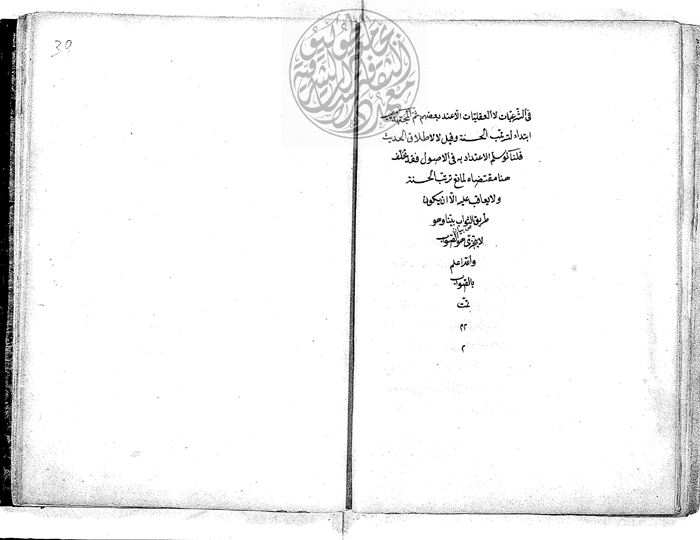 39
في الشرعيات لا العقليات الا عند بعضهم ثم المجتهد
ابتداء لترتب الحسنة وقيل لا لاطلاق الحديث
قلنا لو سلم الاعتداد به في الاصول فقد تخلف
هنا مقتضاه لمانع ترتب الحسنة
ولا يعاقب عليه الا ان يكون
طريق الثواب بينا وهو
لا يتحرى هو الصواب
والله اعلم
بالصواب
تمت
٢٢
٢